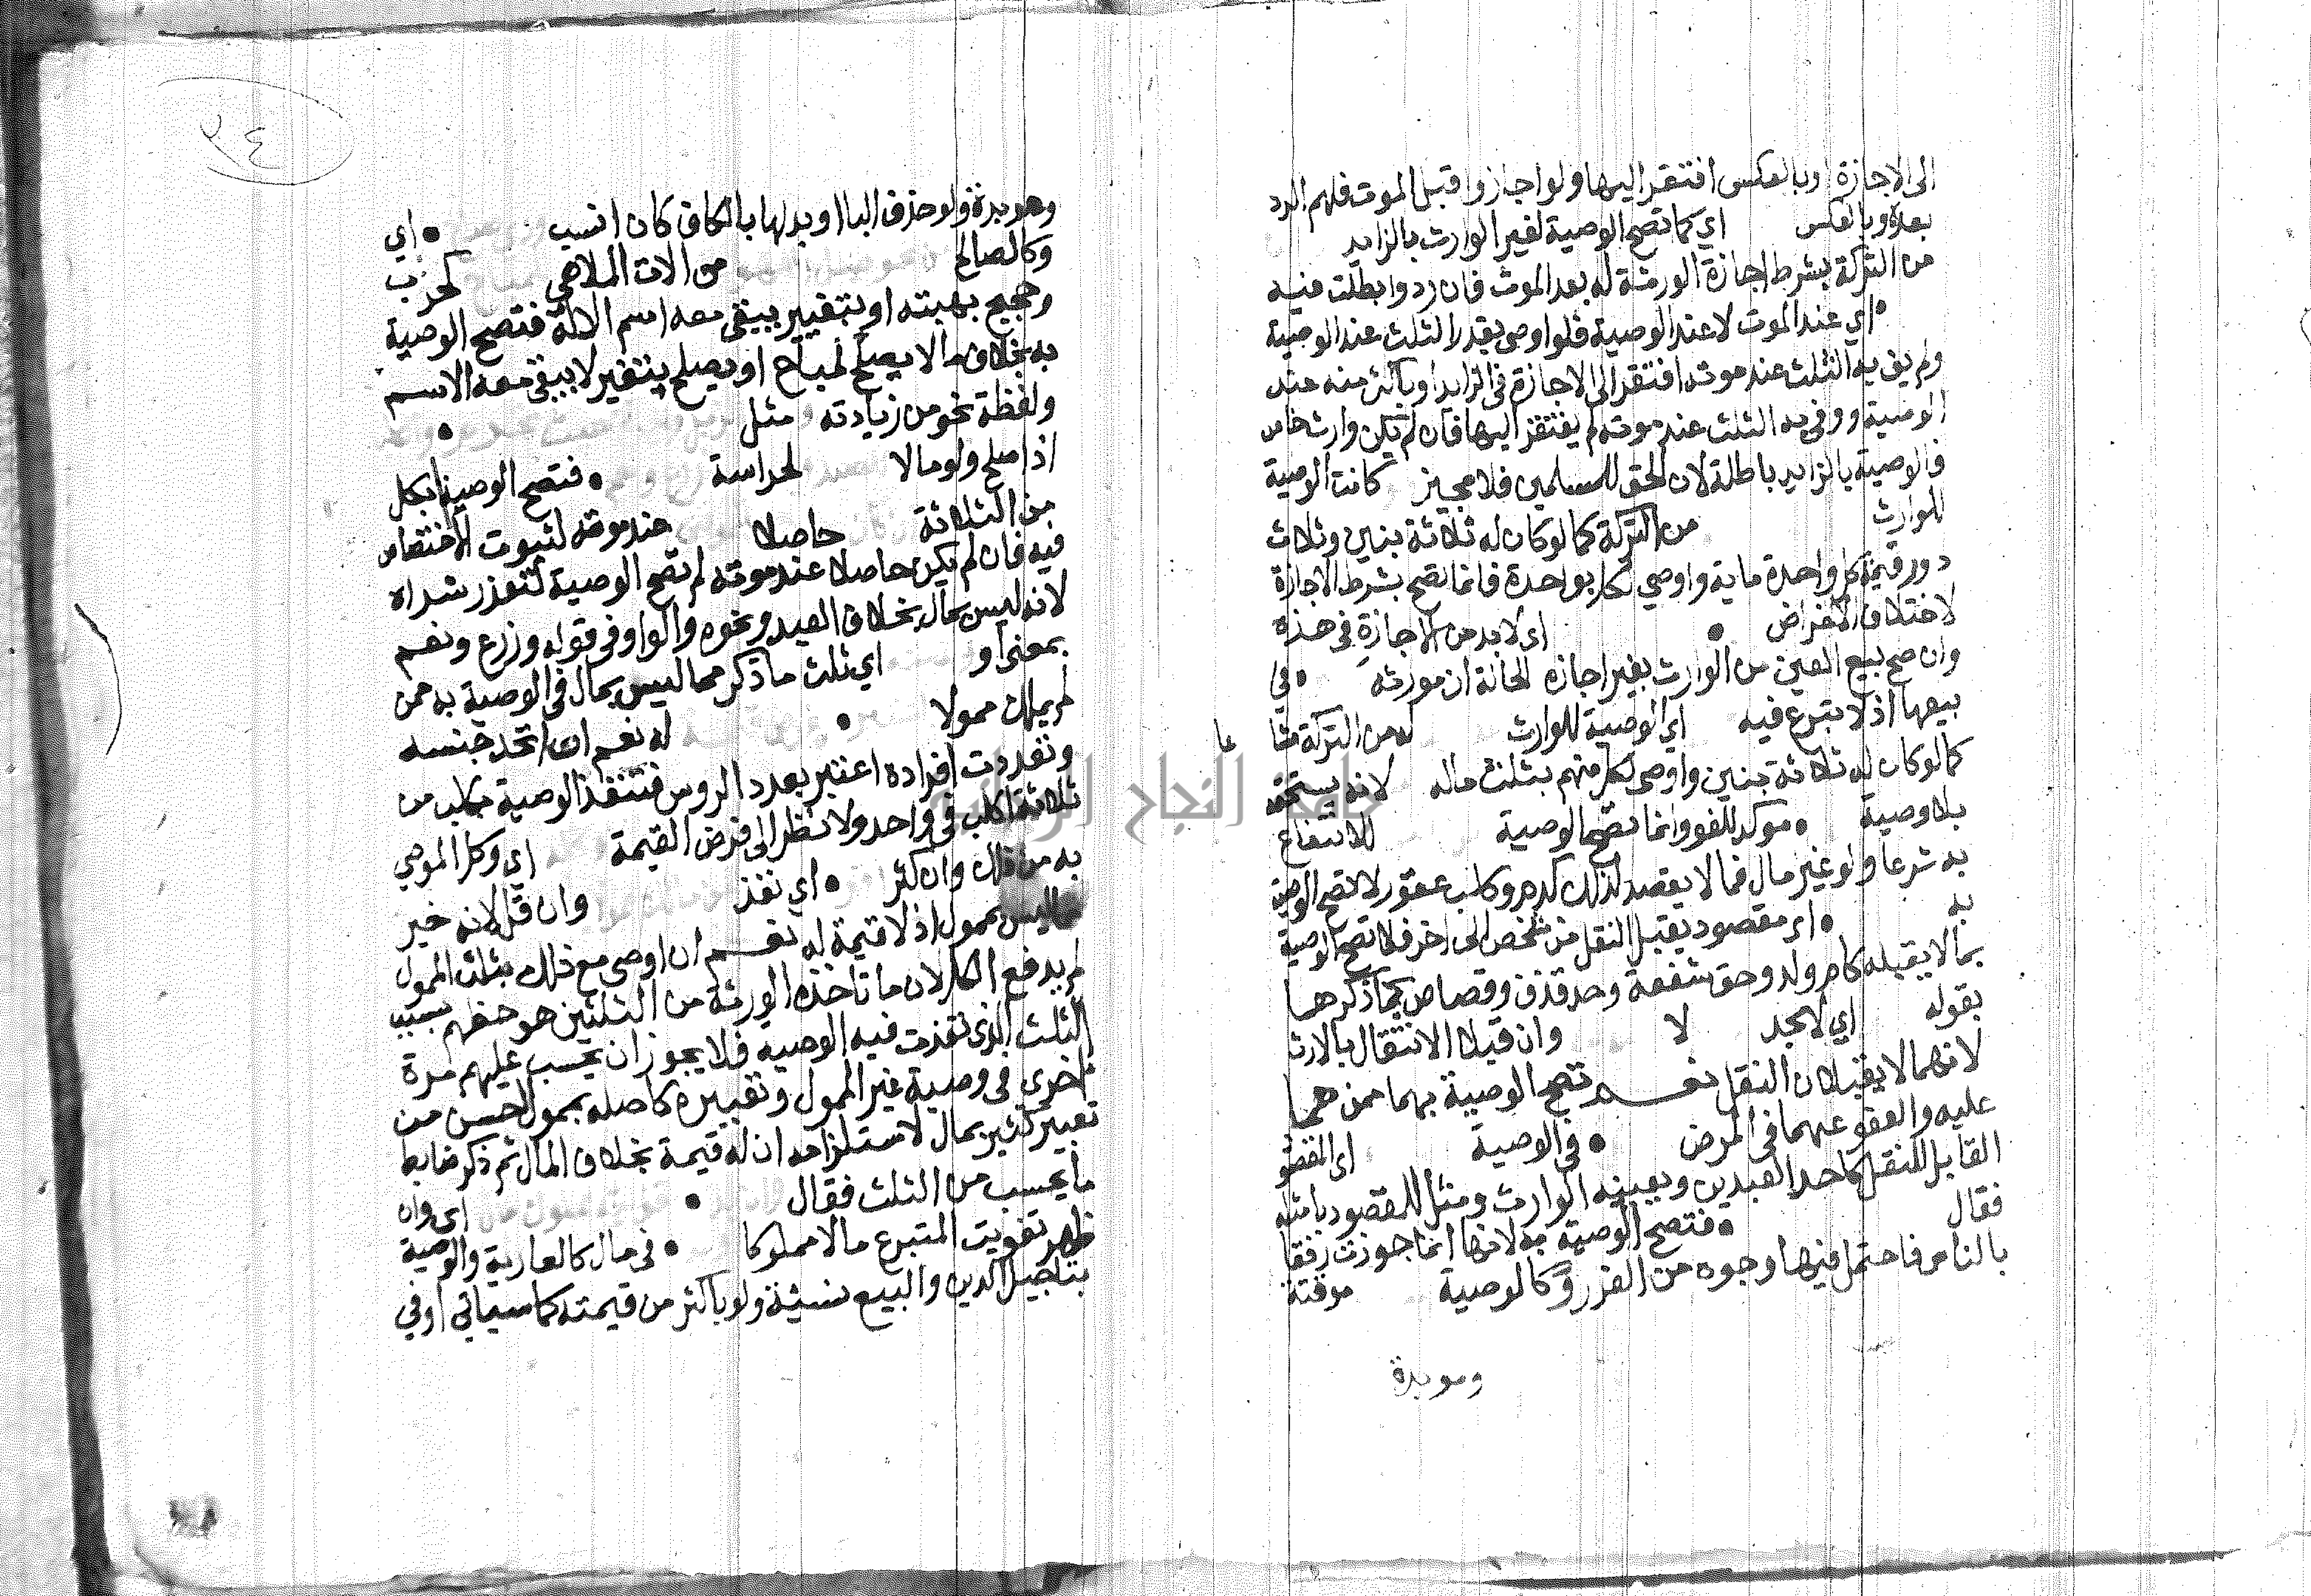 الى الاجازة او بالعكس افتقر اليها ولو اجازوا قبل الموت فلهم الرد
بعده وبالعكس اي كما تصح الوصية لغير الوارث بالزايد
من التركة بشرط اجازة الورثة له بعد الموت فان ردوا بطلت فيه
اي عند الموت لا عند الوصية فلو اوصى بقدر الثلث عند الوصية
ولم يف به الثلث عند موته افتقر الى الاجازة في الزايد او باكثر منه عند
الوصية ووفى به الثلث عند موته لم يفتقر اليها فان لم يكن وارث خاص
فالوصية بالزايد باطلة لان الحق للمسلمين فلا مجيز كانت الوصية
للوارث من التركة كما لو كان له ثلاثة بنين وثلاث
دور قيمة كل واحدة ماية واوصي لكل بواحدة فانما تصح بشرط الاجازة
لاختلاف الاغراض اي لابد من الاجازة في هذه
وان صح بيع العين من الوارث بغير اجازه الحالة ان مورثه في
بيعها اذ لا تبرع فيه اي الوصية للوارث له من التركة
كما لو كان له ثلاثة بنين واوصى لكل منهم بثلث ماله لانه يستحقه
بلا وصية موكد للغو وانما تصح الوصية للانتفاع
به شرعا ولو غير مال فما لا يقصد لذلك كدم وكلب عقور لا تصح الوصية
به اي مقصود يقبل النقل من شخص الى اخر فلا تصح الوصية
بما لا يقبله كام ولد وحق شفعة وحد قذف وقصاص كما ذكرها
بقوله اي لا بحد لا وان قبلا الانتقال بالارث
لانهما لا يقبلان النقل نعم تصح الوصية بهما ممن هما
عليه والعفو عنهما في المرض في الوصية اي المقصود
القابل للنقل كاحد العبدين ويعينه الوارث ومثل للمقصود بامثلة
فقال فتصح الوصية به لانها انما جوزت رفقا
بالناس فاحتمل فيها وجوه من الغرر وكالوصية موقتة
وموبدة
عا
٢٤
وموبدة ولو حذف البا او بدلها بالكاف كان انسب اي
وكالصالح من الات الملاهي
وحجيج بهيته او بتغيير يبقى معه اسم الالة فتصح الوصية
به بخلاف ما لا يصلح لمباح او يصلح بتغير لا يبقى معه الاسم
ولفظة نحو من زيادته مثل
اذا صلح ولو مالا لحراسة فتصح الوصية بكل
من الثلاثة حاصلا عند موته لثبوت الاختصاص
فيه فان لم يكن حاصلا عند موته لم تصح الوصية لتعذر شراه
لانه ليس بمال بخلاف العبد ونحوه والواو في قوله وزرع ونعم
بمعنى او اي ثلث ما ذكر مما ليس بمال في الوصية به ممن
لم يملك ممولا له نعم ان اتحد جنسه
وتعددت افراده اعتبر بعدد الروس فتنفذ الوصية بكلب من
ثلاثة اكلب في واحد ولا نظر الى فرض القيمة اي وكل الموصي
به من ذلك وان كثر اي نفذ وان قل لانه خير
مما ليس بممول اذ لا قيمة له نعم ان اوصى مع ذلك بثلث الممول
لم يدفع الكل لان ما تاخذه الورثة من الثلثين هو حقهم بسبب
الثلث الذي نفذت فيه الوصية فلا يجوز ان يحسب عليهم مرة
اخرى في وصية غير الممول وتعبيره كاصله بممول احسن من
تعبير كثير بمال لاستلزامه ان له قيمة بخلاف المال ثم ذكر ضابط
ما يحسب من الثلث فقال اي وان
ظهر تفويت المتبرع مالا مملوكا في مال كالعارية والوصية
بتاجيل الدين والبيع نسيئة ولو باكثر من قيمته كما سياتي او في